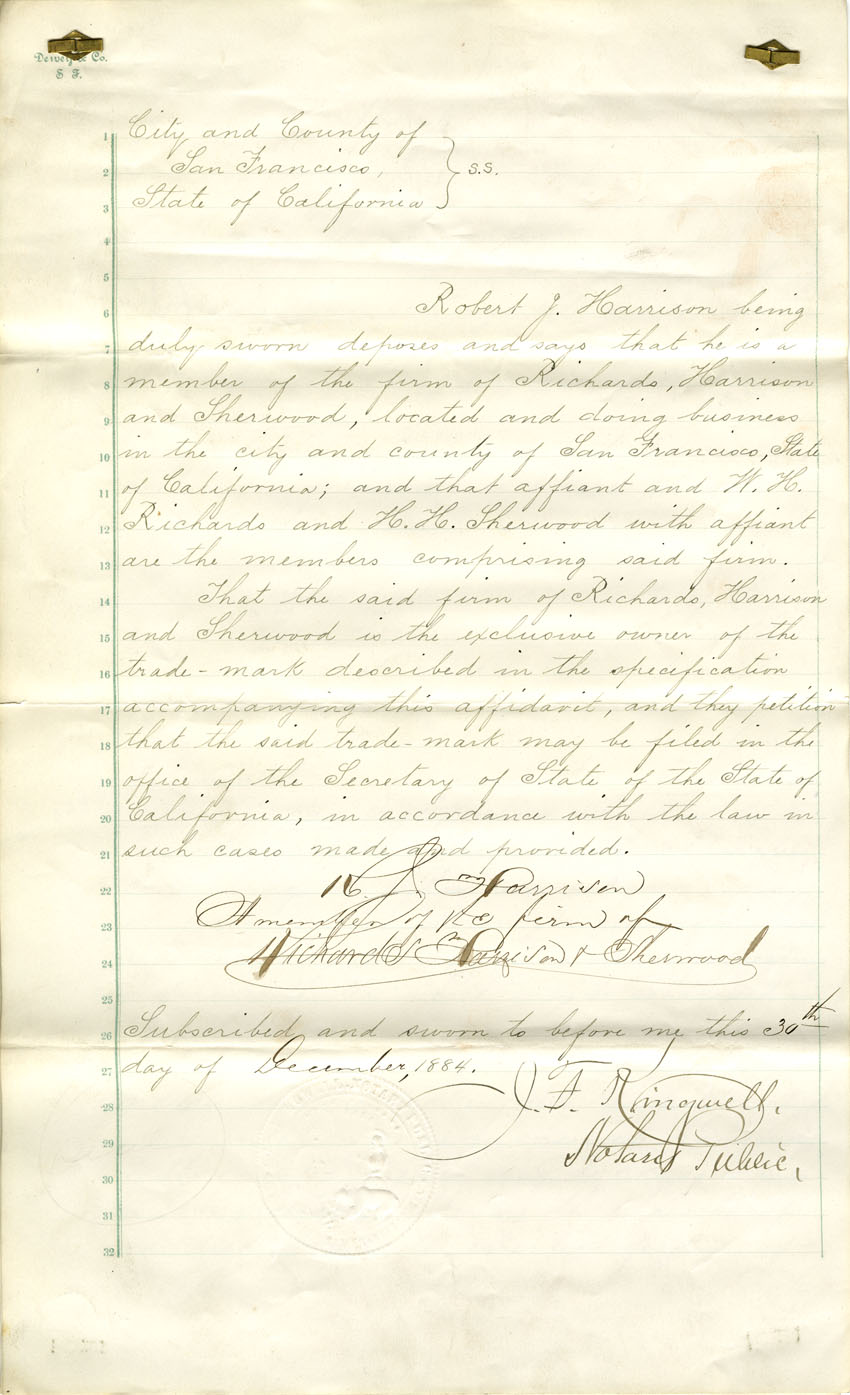 Dewey & Co.
S F.
1 City and County of
2 San Francisco, } s.s.
3 State of California
4
5
6 Robert J. Harrison being
7 duly sworn deposes and says that he is a
8 member of the firm of Richards, Harrison
9 and Sherwood, located and doing business
10 in the city and county of San Francisco, State
11 of California; and that affiant and W. H.
12 Richards and H. H. Sherwood with affiant
13 are the members comprising said firm.
14 That the said firm of Richards, Harrison
15 and Sherwood is the exclusive owner of the
16 trade-mark described in the specification
17 accompanying this affidavit, and they petition
18 that the said trade-mark may be filed in the
19 office of the Secretary of State of the State of
20 California, in accordance with the law in
21 such cases made and provided.
22 R. J. Harrison
23 A member of the firm of
24 Richards Harrison & Sherwood
25
26 Subscribed and sworn to before me this 30th
27 day of December, 1884.
28 J. F. Kingwell,
29 Notary Public,
30
31
32